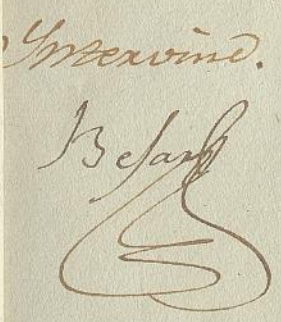 Intervine.
Besart